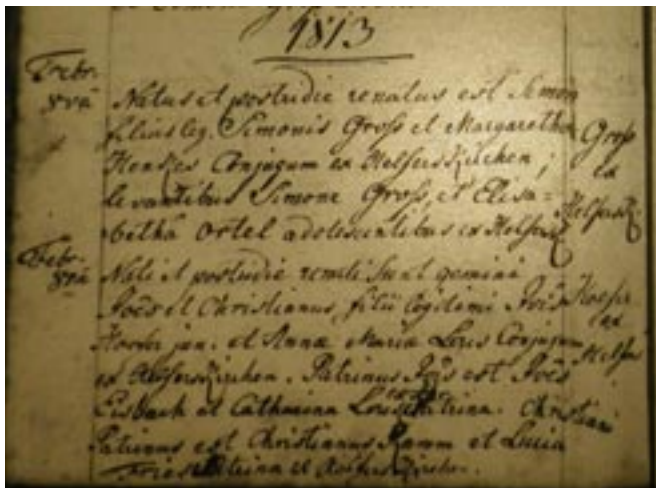 1813
Febr.
8va
Natus et postridie renatus est Simon
filius leg. Simonis Groß et Margaretha
Conjugum ex Helferskirchen;
levantibus Simone Groß, et Elisa=
betha Ortel adolescentibus ex Helfersk
Groß
ex
Helfersk
Febr.
8va
Nati et postridie renati sunt gemini
Joës et Christianus, filii legitimi Jois
jun. et Annæ Maria Loris Conjugum
ex Helferskirchen. Patrinus Jois est Joës
Eisbach et Catharina Patrina. Christiani
Patrinus est Christianus Ramm et Lucia
Patrina ex Helferskirchen.
ex
Helfers